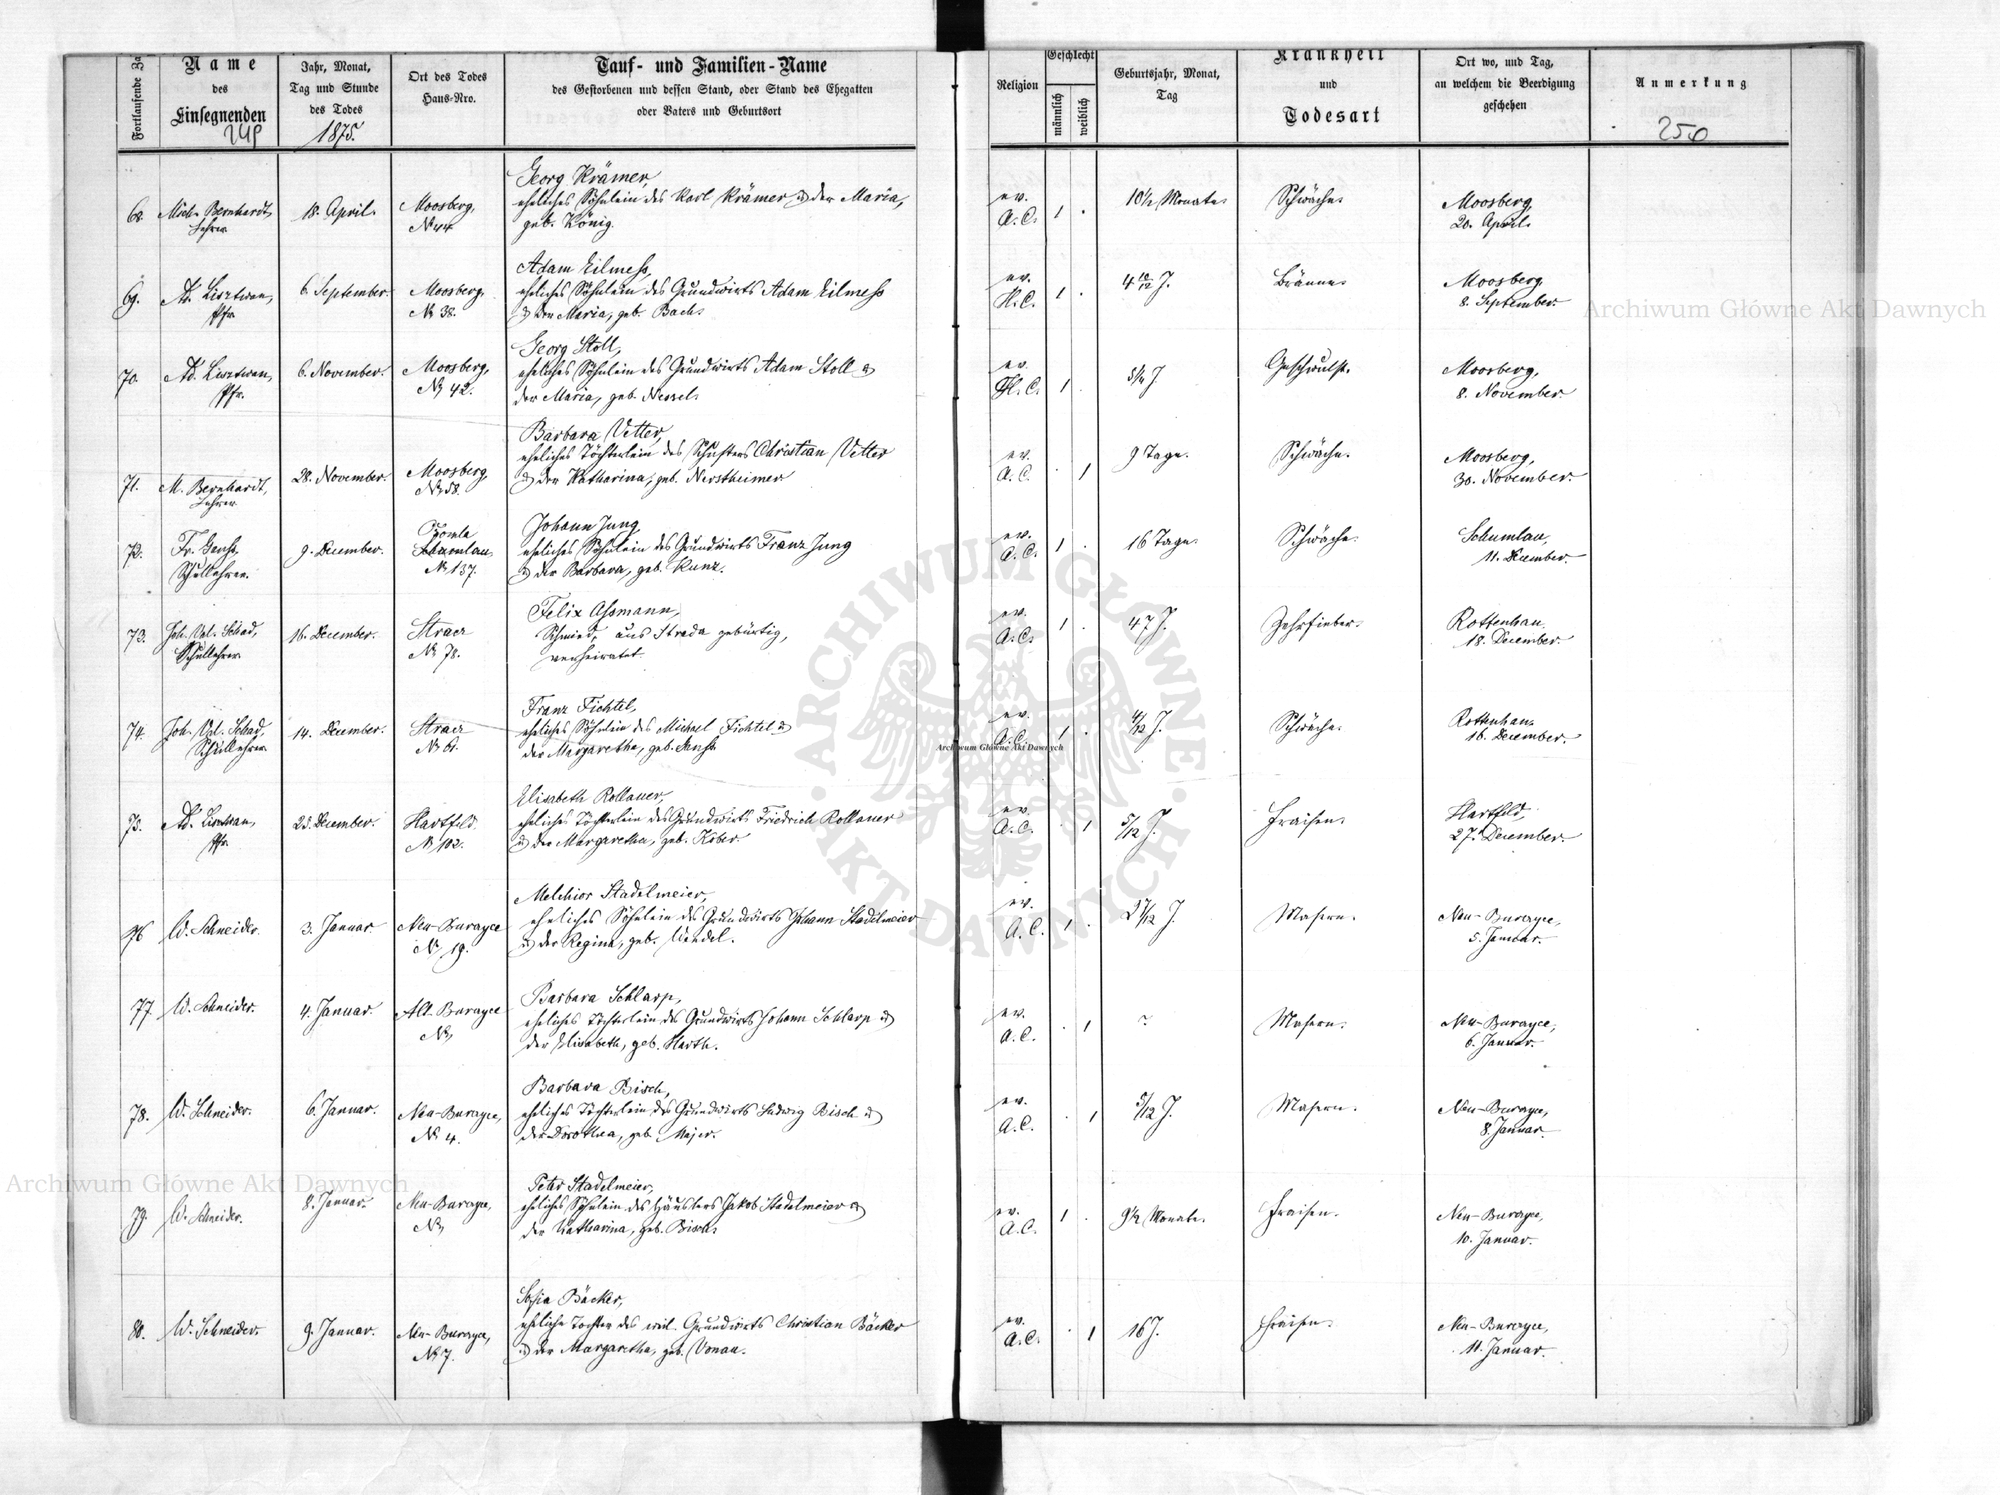 Fortlaufende Za
Name
des
Einsegnenden
249
Jahr, Monat,
Tag und Stunde
des Todes
1875.
Ort des Todes
Haus-Nro.
Tauf- und Familien-Name
des Gestorbenen und dessen Stand, oder Stand des Ehegatten
oder Vaters und Geburtsort
Religion
Geschlecht
männlich
weiblich
Geburtsjahr, Monat,
Tag
Krankheit
und
Todesart
Ort wo, und Tag,
an welchem die Beerdigung
geschehen
Anmerkung
250
68. Mich. Bernhardt,
Lehrer
18. April.
Moosberg,
No 44
Georg Krämer,
eheliches Söhnlein des Karl Krämer u der Maria,
geb. König.
ev.
A. C.
1 .
10 1/2 Monate.
Schwäche.
Moosberg,
20. April.
69. Ad. Lisztwan,
Pfr.
6. September.
Moosberg,
No 38.
Adam Eilmess,
eheliches Söhnlein des Grundwirts Adam Eilmess
u der Maria, geb. Bach.
ev.
H. C.
1 .
4 10/12 J.
Bräune.
Moosberg,
8. September.
70. Ad. Lisztwan,
Pfr.
6. November.
Moosberg,
No 42.
Georg Stoll,
eheliches Söhnlein des Grundwirts Adam Stoll u
der Maria, geb. Nessel.
ev.
H. C.
1 .
Geschwulst.
Moosberg,
8. November.
71. M. Bernhardt,
Lehrer
28. November.
Moosberg,
No 58.
Barbara Vetter,
eheliches Töchterlein des Schusters Christian Vetter
u der Katharina, geb. Nerstheimer
ev.
A. C.
. 1
9 Tage.
Schwäche.
Moosberg,
30. November.
72. Fr. Gensh,
Schullehrer.
9. December.
Schumlau,
No 137.
Johann Jung,
eheliches Söhnlein des Grundwirts Franz Jung
u der Barbara, geb. Kunz.
ev.
A. C.
1 .
16 Tage.
Schwäche.
Schumlau,
11. December.
73. Joh. Val. Schad,
Schullehrer.
16. December.
Stracz
No 78.
Felix Assmann,
Schmied, aus Strada gebürtig,
verheiratet.
ev.
A. C.
1 .
47 J.
Zehrfieber.
Rottenhan
18. December.
74. Joh. Val. Schad,
Schullehrer
14. December.
Stracz
No 61.
Franz Fichtel,
eheliches Söhnlein des Michael Fichtel u
der Margaretha, geb.
ev.
A. C.
1 .
4/12 J.
Schwäche.
Rottenhan
16. December.
75. Ad. Lisztwan,
Pfr.
25. December.
Hartfeld
No 102.
Elisabeth Rollauer,
eheliches Töchterlein des Grundwirts Friedrich Rollauer
u der Margaretha, geb. Köber.
ev.
A. C.
. 1
5/12 J.
Fraisen.
Hartfeld,
27. December.
76 W. Schneider.
3. Januar
Neu-Burczyce
No 19.
Melchior Stadelmeier,
eheliches Söhnlein des Grundwirts Johann Stadelmeier
u der Regina, geb. Wendel.
ev.
A. C.
1 .
2 7/12 J.
Masern.
Neu-Burczyce,
5. Januar.
77. W. Schneider.
4. Januar.
Alt-Burczyce
No
Barbara Schlarp,
eheliches Töchterlein des Grundwirts Johann Schlarp u
der Elisabeth, geb. Harth.
ev.
A. C.
. 1
?
Masern.
Neu-Burczyce,
6. Januar.
78. W. Schneider.
6. Januar.
Neu-Burczyce,
No 4.
Barbara Bisch,
eheliches Töchterlein des Grundwirts Ludwig Bisch u
der Dorothea, geb. Majer.
ev.
A. C.
. 1
5/12 J.
Masern.
Neu-Burczyce,
8. Januar.
79. W. Schneider.
8. Januar.
Neu-Burczyce,
No
Peter Stadelmeier,
eheliches Söhnlein des Häuslers Jakob Stadelmeier u
der Katharina, geb. Bisch.
ev.
A. C.
1 .
9 1/2 Monate.
Fraisen.
Neu-Burczyce,
10. Januar.
80. W. Schneider.
9. Januar.
Neu-Burczyce,
No 7.
Sofia Bäcker,
eheliche Tochter des weil. Grundwirts Christian Bäcker
u der Margaretha, geb. Vonau.
ev.
A. C.
. 1
16 J.
Fraisen.
Neu-Burczyce,
11. Januar.
Archiwum Główne Akt Dawnych
Archiwum Główne Akt Dawnych
Archiwum Główne Akt Dawnych
ARCHIWUM GŁÓWNE
AKT DAWNYCH